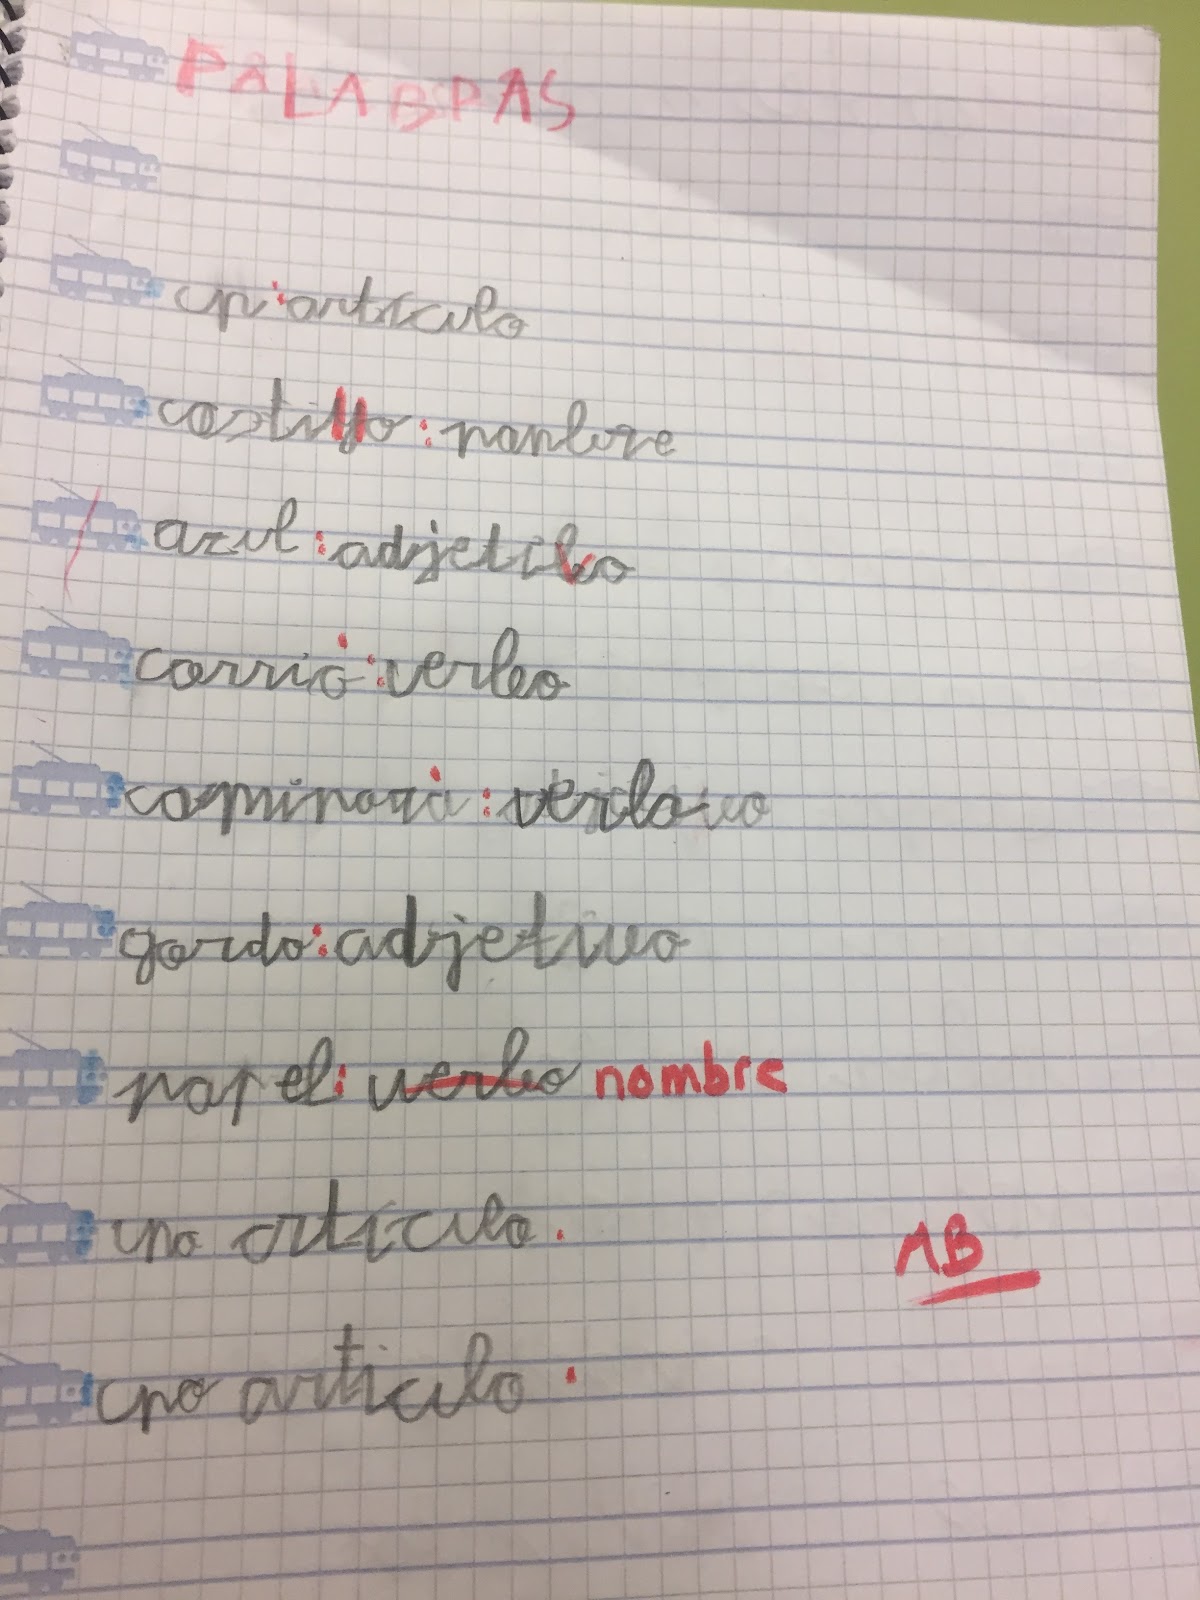 PALABRAS
un: artículo
castillo: nombre
azul: adjetivo
corrió: verbo
caminará: verbo
gordo: adjetivo
papel: verbo nombre
una artículo.
uno artículo.
AB